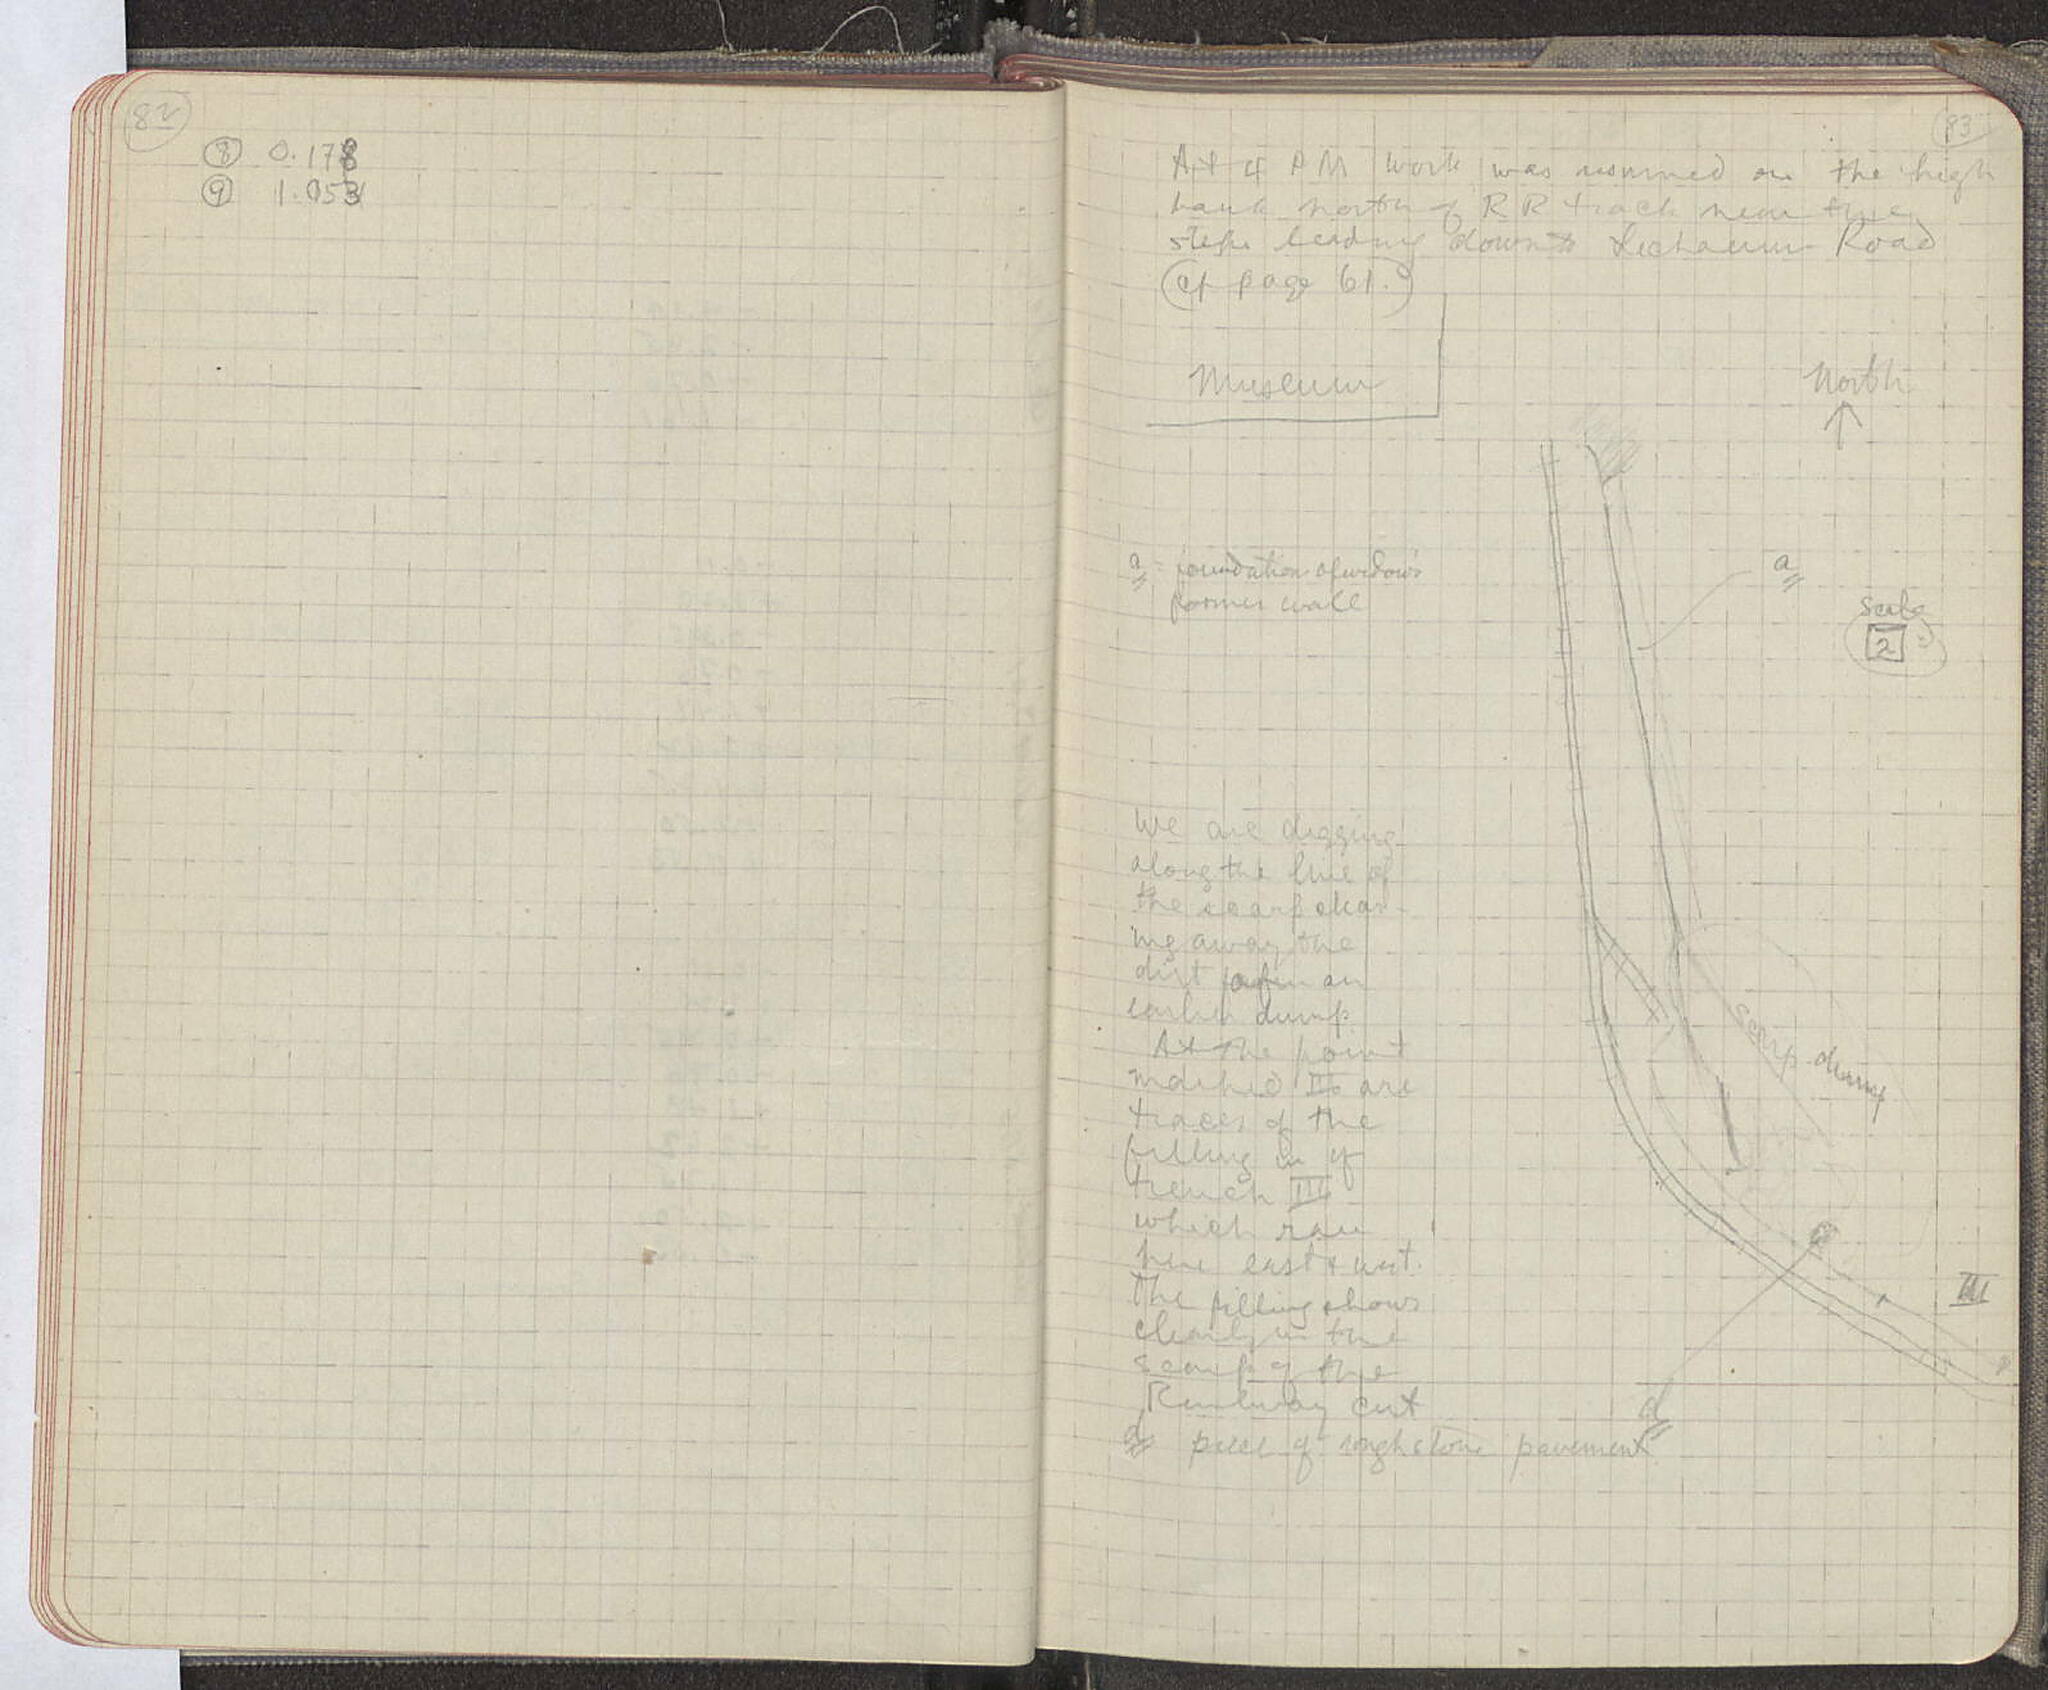 82
⑧ 0.178
⑨ 1.053
83
At 4 PM work was resumed on the high
bank north of RR track near the
steps leading down to Lechaeum Road
(cf page 61.)
Museum
North
a = foundation of widow's
former wall
a
Scale
2
We are digging
along the line of
the scarp clear-
ing away the
dirt from an
earlier dump
At the point
marked III are
traces of the
filling in of
trench III
which ran
here east & west.
The filling shows
clearly in the
scarp of the
Railway cut
scarp dump
III
d
d piece of rough stone pavement